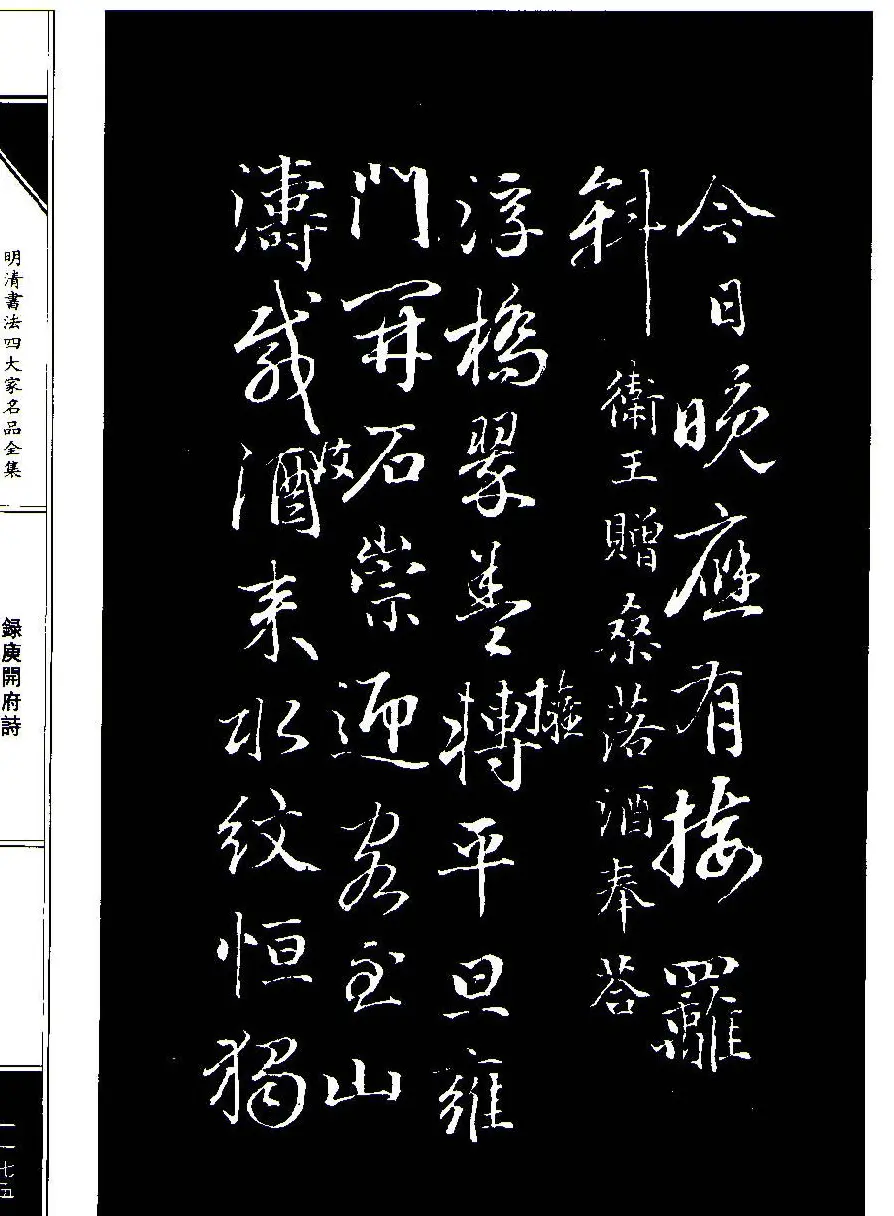 今日晚應有接䍦
斜
衛王贈桑落酒奉荅
擁
浮橋翠盖轉平旦雍
門開石崇迎客至山
濤載酒來水紋恒獨
明清書法四大家名品全集
録庾開府詩
一一七五